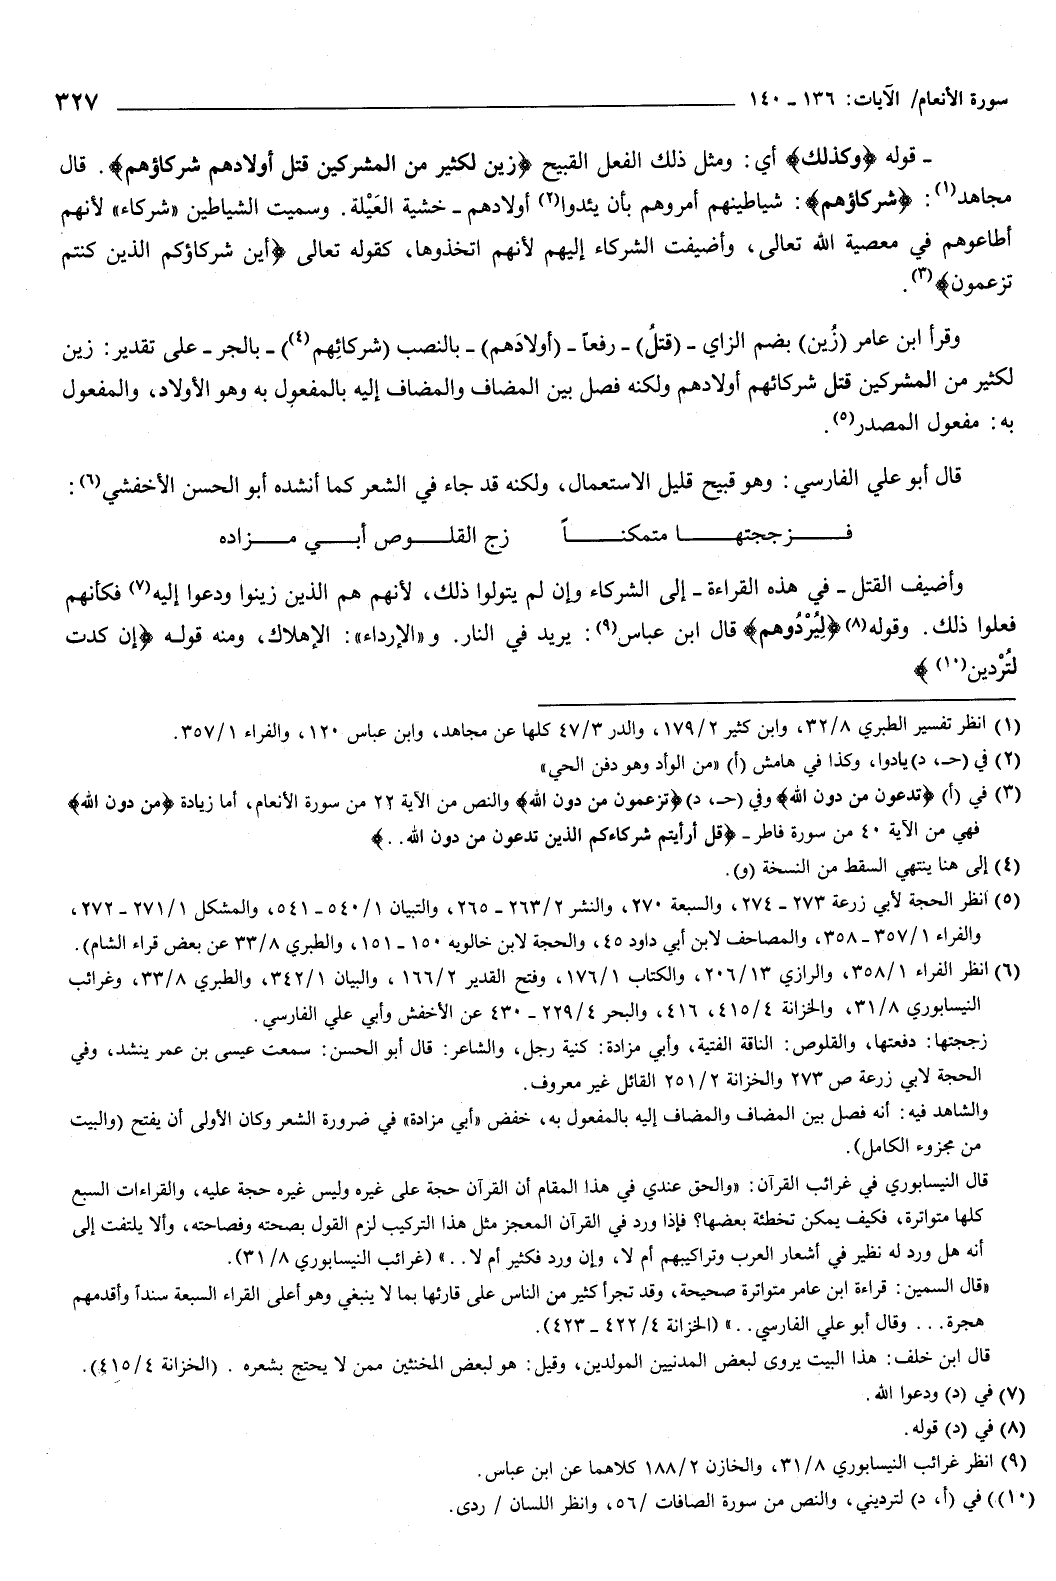 سورة الأنعام/ الآيات: ١٣٦ ـ ١٤٠ ٣٢٧
ـ قوله ﴿وكذلك﴾ أي: ومثل ذلك الفعل القبيح ﴿زين لكثير من المشركين قتل أولادهم شركاؤهم﴾. قال
مجاهد(١): ﴿شركاؤهم﴾: شياطينهم أمروهم بأن يئدوا(٢) أولادهم ـ خشية العَيْلة. وسميت الشياطين «شركاء» لأنهم
أطاعوهم في معصية الله تعالى، وأضيفت الشركاء إليهم لأنهم اتخذوها، كقوله تعالى ﴿أين شركاؤكم الذين كنتم
تزعمون﴾(٣).
وقرأ ابن عامر (زُين) بضم الزاي ـ (قتلُ) ـ رفعاً ـ (أولادَهم) ـ بالنصب (شركائِهم(٤)) ـ بالجر ـ على تقدير: زين
لكثير من المشركين قتل شركائهم أولادهم ولكنه فصل بين المضاف والمضاف إليه بالمفعول به وهو الأولاد، والمفعول
به: مفعول المصدر(٥).
قال أبو علي الفارسي: وهو قبيح قليل الاستعمال، ولكنه قد جاء في الشعر كما أنشده أبو الحسن الأخفشي(٦):
فـزججتهـا متمكنـاً زج القلـوص أبـي مـزاده
وأضيف القتل ـ في هذه القراءة ـ إلى الشركاء وإن لم يتولوا ذلك، لأنهم هم الذين زينوا ودعوا إليه(٧) فكأنهم
فعلوا ذلك. وقوله(٨) ﴿لِيُرْدُوهم﴾ قال ابن عباس(٩): يريد في النار. و «الإرداء»: الإهلاك، ومنه قوله ﴿إن كدت
لتُرْدين(١٠)﴾
(١) انظر تفسير الطبري ٣٢/٨، وابن كثير ١٧٩/٢، والدر ٤٧/٣ كلها عن مجاهد، وابن عباس ١٢٠، والفراء ٣٥٧/١.
(٢) في (حـ، د) يادوا، وكذا في هامش (أ) «من الوأد وهو دفن الحي»
(٣) في (أ) ﴿تدعون من دون الله﴾ وفي (حـ، د) ﴿تزعمون من دون الله﴾ والنص من الآية ٢٢ من سورة الأنعام، أما زيادة ﴿من دون الله﴾
فهي من الآية ٤٠ من سورة فاطر ـ ﴿قل أرأيتم شركاءكم الذين تدعون من دون الله..﴾
(٤) إلى هنا ينتهي السقط من النسخة (و).
(٥) انظر الحجة لأبي زرعة ٢٧٣ ـ ٢٧٤، والسبعة ٢٧٠، والنشر ٢٦٣/٢ ـ ٢٦٥، والتبيان ٥٤٠/١ ـ ٥٤١، والمشكل ٢٧١/١ ـ ٢٧٢،
والفراء ٣٥٧/١ ـ ٣٥٨، والمصاحف لابن أبي داود ٤٥، والحجة لابن خالويه ١٥٠ ـ ١٥١، والطبري ٣٣/٨ عن بعض قراء الشام).
(٦) انظر الفراء ٣٥٨/١، والرازي ٢٠٦/١٣، والكتاب ١٧٦/١، وفتح القدير ١٦٦/٢ ، والبيان ٣٤٢/١، والطبري ٣٣/٨، وغرائب
النيسابوري ٣١/٨، والخزانة ٤١٥/٤، ٤١٦، والبحر ٢٢٩/٤ ـ ٤٣٠ عن الأخفش وأبي علي الفارسي.
زججتها: دفعتها، والقلوص: الناقة الفتية، وأبي مزادة: كنية رجل، والشاعر: قال أبو الحسن: سمعت عيسى بن عمر ينشد، وفي
الحجة لابي زرعة ص ٢٧٣ والخزانة ٢٥١/٢ القائل غير معروف.
والشاهد فيه: أنه فصل بين المضاف والمضاف إليه بالمفعول به، خفض «أبي مزادة» في ضرورة الشعر وكان الأولى أن يفتح (والبيت
من مجزوء الكامل).
قال النيسابوري في غرائب القرآن: «والحق عندي في هذا المقام أن القرآن حجة على غيره وليس غيره حجة عليه، والقراءات السبع
كلها متواترة، فكيف يمكن تخطئة بعضها؟ فإذا ورد في القرآن المعجز مثل هذا التركيب لزم القول بصحته وفصاحته، وألا يلتفت إلى
أنه هل ورد له نظير في أشعار العرب وتراكيبهم أم لا، وإن ورد فكثير أم لا..» (غرائب النيسابوري ٣١/٨).
«قال السمين: قراءة ابن عامر متواترة صحيحة، وقد تجرأ كثير من الناس على قارئها بما لا ينبغي وهو أعلى القراء السبعة سنداً وأقدمهم
هجرة... وقال أبو علي الفارسي..» (الخزانة ٤٢٢/٤ ـ ٤٢٣).
قال ابن خلف: هذا البيت يروى لبعض المدنيين المولدين، وقيل: هو لبعض المخنثين ممن لا يحتج بشعره . (الخزانة ٤١٥/٤).
(٧) في (د) ودعوا الله.
(٨) في (د) قوله.
(٩) انظر غرائب النيسابوري ٣١/٨، والخازن ١٨٨/٢ كلاهما عن ابن عباس.
(١٠)) في (أ، د) لترديني، والنص من سورة الصافات /٥٦، وانظر اللسان / ردى.